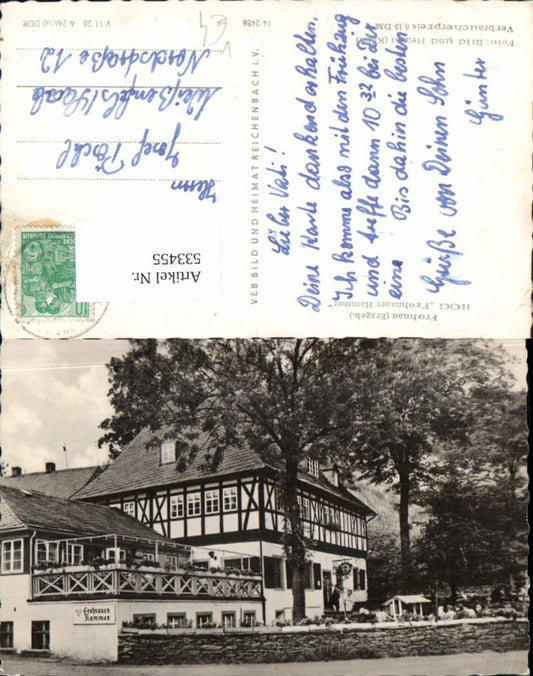 Frohnau (Erzgeb.)
HOG „Frohnauer Hammer"
Lieber Vati!
Deine Karte dankend erhalten.
Ich komme also mit dem Frühzug
und treffe dann 10 32 bei Dir
eine
Bis dahin die besten
Grüße von Deinen Sohn
Günter
Foto: Bild und Heimat
Verbraucherpreis 0,15 DM
14 2486
VEB BILD UND HEIMAT REICHENBACH i. V.
Herrn
Josef Pöckl
Weißenfels/Saale
Nordstraße 12
V 11 28 A 246/60 DDR
10
Artikel Nr.
533455
Frohnauer
Hammer